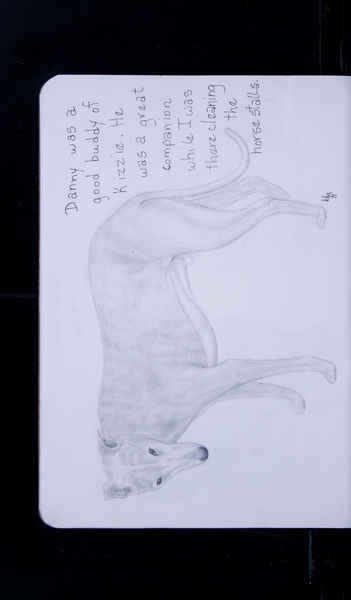 Danny was a
good buddy of
Kizzie. He
was a great
companion
while I was
there cleaning
the
horse stalls.